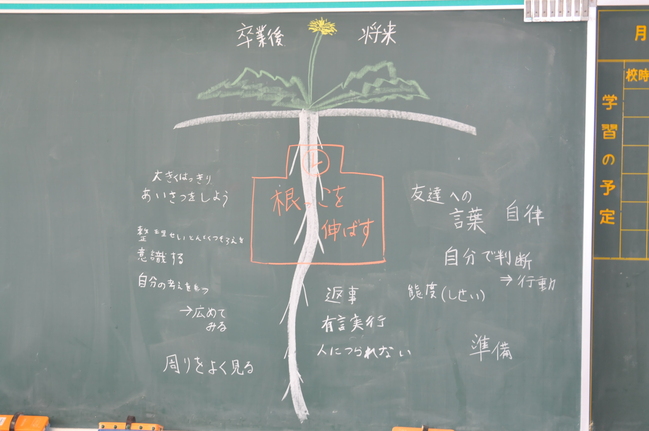 卒業後 将来
根っこを
伸ばす
大きくはっきり
あいさつをしよう
意識する
自分の考えをもつ
→広めて
みる
周りをよく見る
返事
有言実行
人につられない
友達への
言葉
自律
自分で判断
⇒行動
態度(しせい)
準備
月
校時
学習の予定